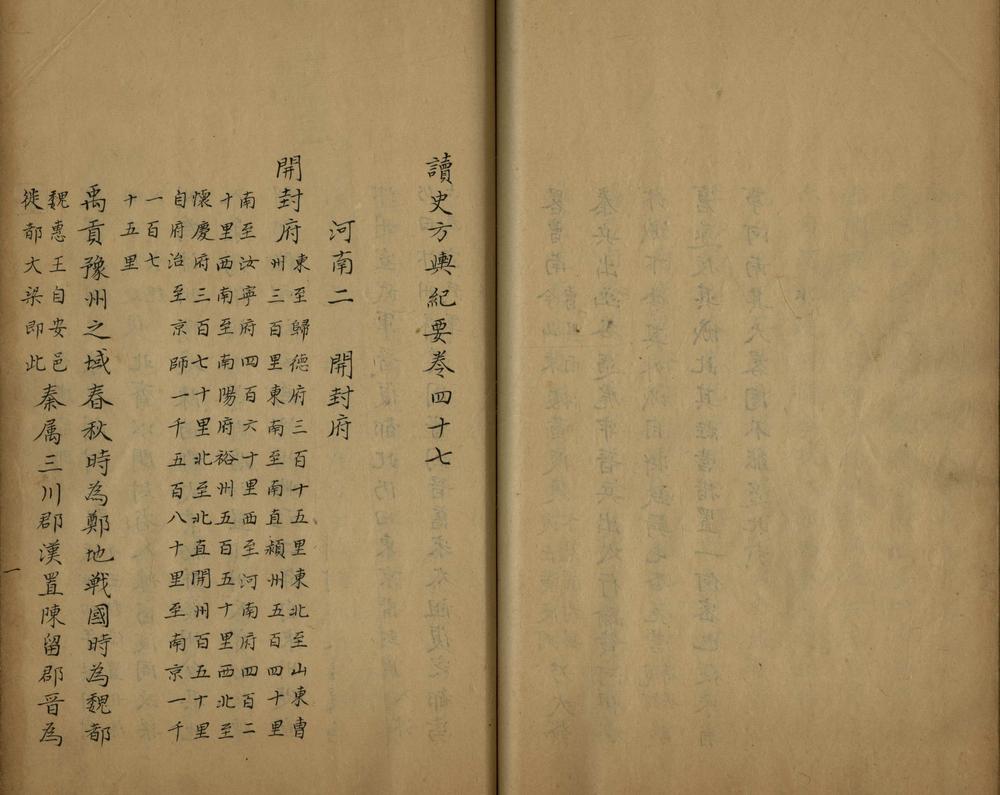 讀史方輿紀要卷四十七
河南二 開封府
開封府
東至歸德府三百十五里東北至山東曹
州三百里東南至南直潁州五百四十里
南至汝寧府四百六十里西至河南府四百二
十里西南至南陽府裕州五百五十里西北至
懷慶府三百七十里北至北直開州百五十里
自府治至京師一千五百八十里至南京一千
一百七
十五里
禹貢豫州之域春秋時為鄭地戰國時為魏都
魏惠王自安邑
徙都大梁即此
秦属三川郡漢置陳留郡晉為
一